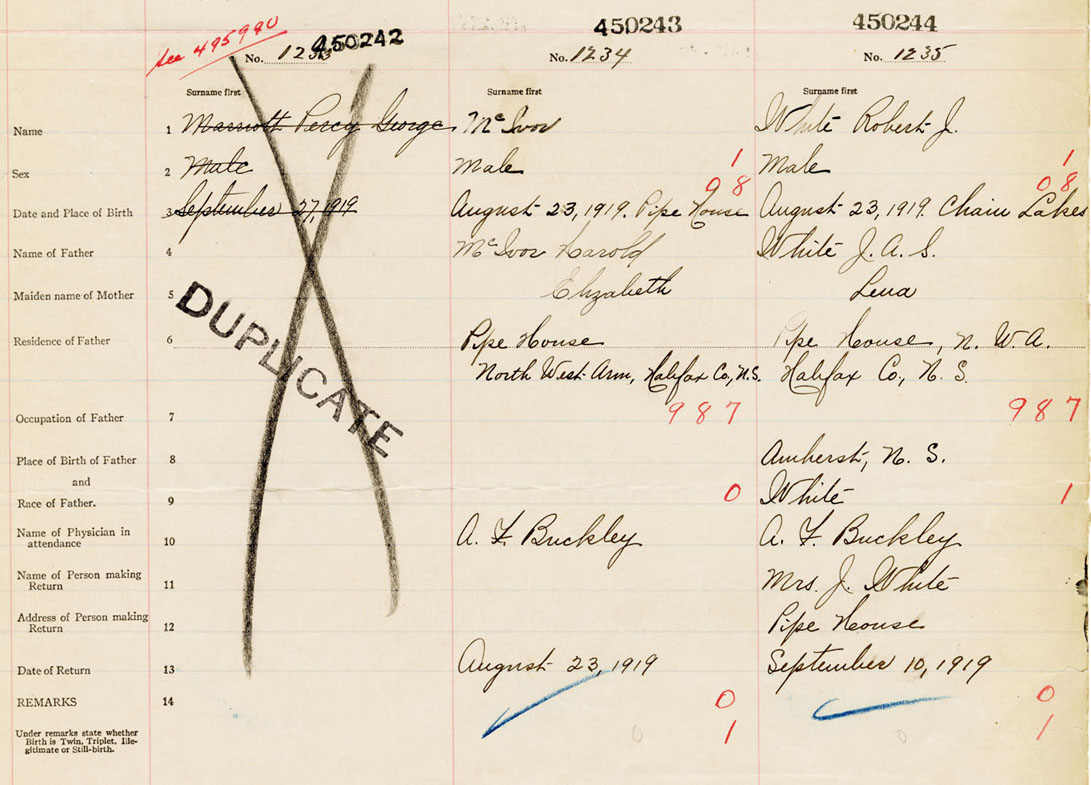 See 495990
450242
450243
450244
No. 1233
No. 1234
No. 1235
Surname first
Surname first
Surname first
Name 1 Marriott Percy George McIvor White Robert J.
Sex 2 Male Male 1 Male 1
08 08
Date and Place of Birth 3 September 27, 1919 August 23, 1919. Pipe House August 23, 1919. Chain Lakes
Name of Father 4 McIvor Harold White J. A. S.
Maiden name of Mother 5 Elizabeth Lena
DUPLICATE
Residence of Father 6 Pipe House Pipe House, N. W. A.
North West Arm, Halifax Co., N.S. Halifax Co., N. S.
987 987
Occupation of Father 7
Place of Birth of Father 8 Amherst, N. S.
and
Race of Father. 9 0 White 1
Name of Physician in
attendance 10 A. F. Buckley A. F. Buckley
Name of Person making
Return 11 Mrs. J. White
Address of Person making
Return 12 Pipe House
Date of Return 13 August 23, 1919 September 10, 1919
REMARKS 14 0 0
Under remarks state whether
Birth is Twin, Triplet, Ille-
gitimate or Still-birth. 0 1 0 1